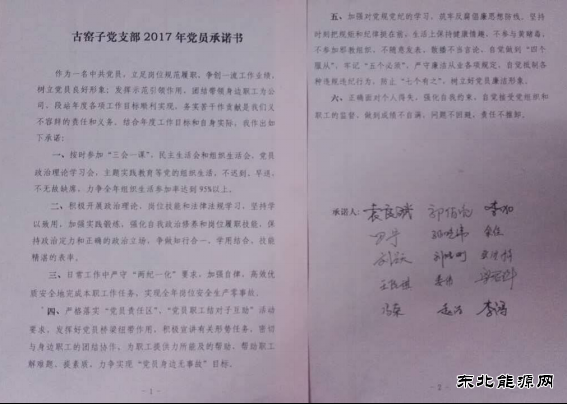 古窑子党支部 2017 年党员承诺书
作为一名中共党员，立足岗位规范履职、争创一流工作业绩，
树立党员良好形象；发挥示范引领作用，团结带领身边职工为公
司、段站年度各项工作目标顺利实现，务实苦干作贡献是我们义
不容辞的责任和义务。结合年度工作目标和自身实际，我作出如
下承诺：
一、按时参加“三会一课”、民主生活会和组织生活会、党员
政治理论学习会，主题实践教育等党的组织生活，不迟到、早退，
不无故缺席。力争全年组织生活参加率达到 95%以上。
二、积极开展政治理论、岗位技能和法律法规学习。坚持学
以致用，加强实践锻炼，强化自我政治修养和岗位履职技能，保
持政治定力和正确的政治立场，争做知行合一、学用结合、技能
精湛的表率。
三、日常工作中严守“两纪一化”要求，加强自律，高效优
质安全地完成本职工作任务，实现全年岗位安全生产零事故。
四、严格落实“党员责任区”、“党员职工结对子互助”活动
要求，发挥好党员桥梁纽带作用。积极宣讲有关形势任务，密切
与身边职工的团结协作，为职工提供力所能及的帮助，帮助职工
解难题、提素质，力争实现“党员身边无事故”目标。
- 1 -
五、加强对党规党纪的学习，筑牢反腐倡廉思想防线。坚持
时刻把规矩和纪律挺在前，生活上保持健康情趣，不参与黄赌毒，
不参加邪教组织，不随意发表、散播不当言论，自觉做到“四个
服从”，牢记“五个必须”，严守廉洁从业各项规定，自觉抵制各
种违规违纪行为，防止“七个有之”，树立好党员廉洁形象。
六、正确面对个人得失，强化自我约束，自觉接受党组织和
职工的监督，做到成绩不自满，问题不回避，责任不推卸。
承诺人：
- 2 -
东北能源网